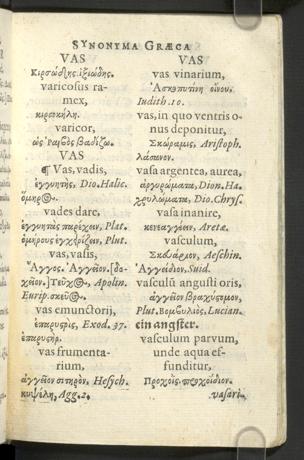 SYNONYMA GRÆCA
VAS
Κιρσώδης, ἰξιώδης.
varicosus ra-
mex,
κιρσοκήλη.
varicor,
ὡς βαδίζω.
VAS
¶ Vas, vadis,
ἐγγυητὴς, Dio. Halic.
ὅμηρος.
vades dare,
ἐγγυητὰς παρέχειν, Plat.
ὁμήρους Plut.
vas, vasis,
Ἄγγος. Ἀγγεῖον. [δο-
χεῖον.] Τεῦχος, Apolin.
Eurip. σκεῦος.
vas emunctorij,
ἐπαρυστρὶς, Exod. 37.
ἐπαρυστήρ.
vas frumenta-
rium,
ἀγγεῖον σιτηρὸν, Hesych.
κυψέλη, Agg. 2.
VAS
vas vinarium,
Ἀσκοπυτίνη οἴνου.
Iudith. 10.
vas, in quo ventris o-
nus deponitur,
Σκωραμὶς, Aristoph.
λάσανον.
vasa argentea, aurea,
ἀργυρώματα, Dion. Ha-
χρυσώματα, Dio. Chrys.
vasa inanire,
κενεαγγέειν, Aretæ.
vasculum,
Σκευάριον, Aeschin.
Ἀγγείδιον, Suid.
vasculū angusti oris,
ἀγγεῖον βραχύστομον,
Plut. Βομβυλιὸς, Lucian.
ein angster.
vasculum parvum,
unde aqua ef-
funditur,
Προχοῒς. προχοΐδιον.
vasari-